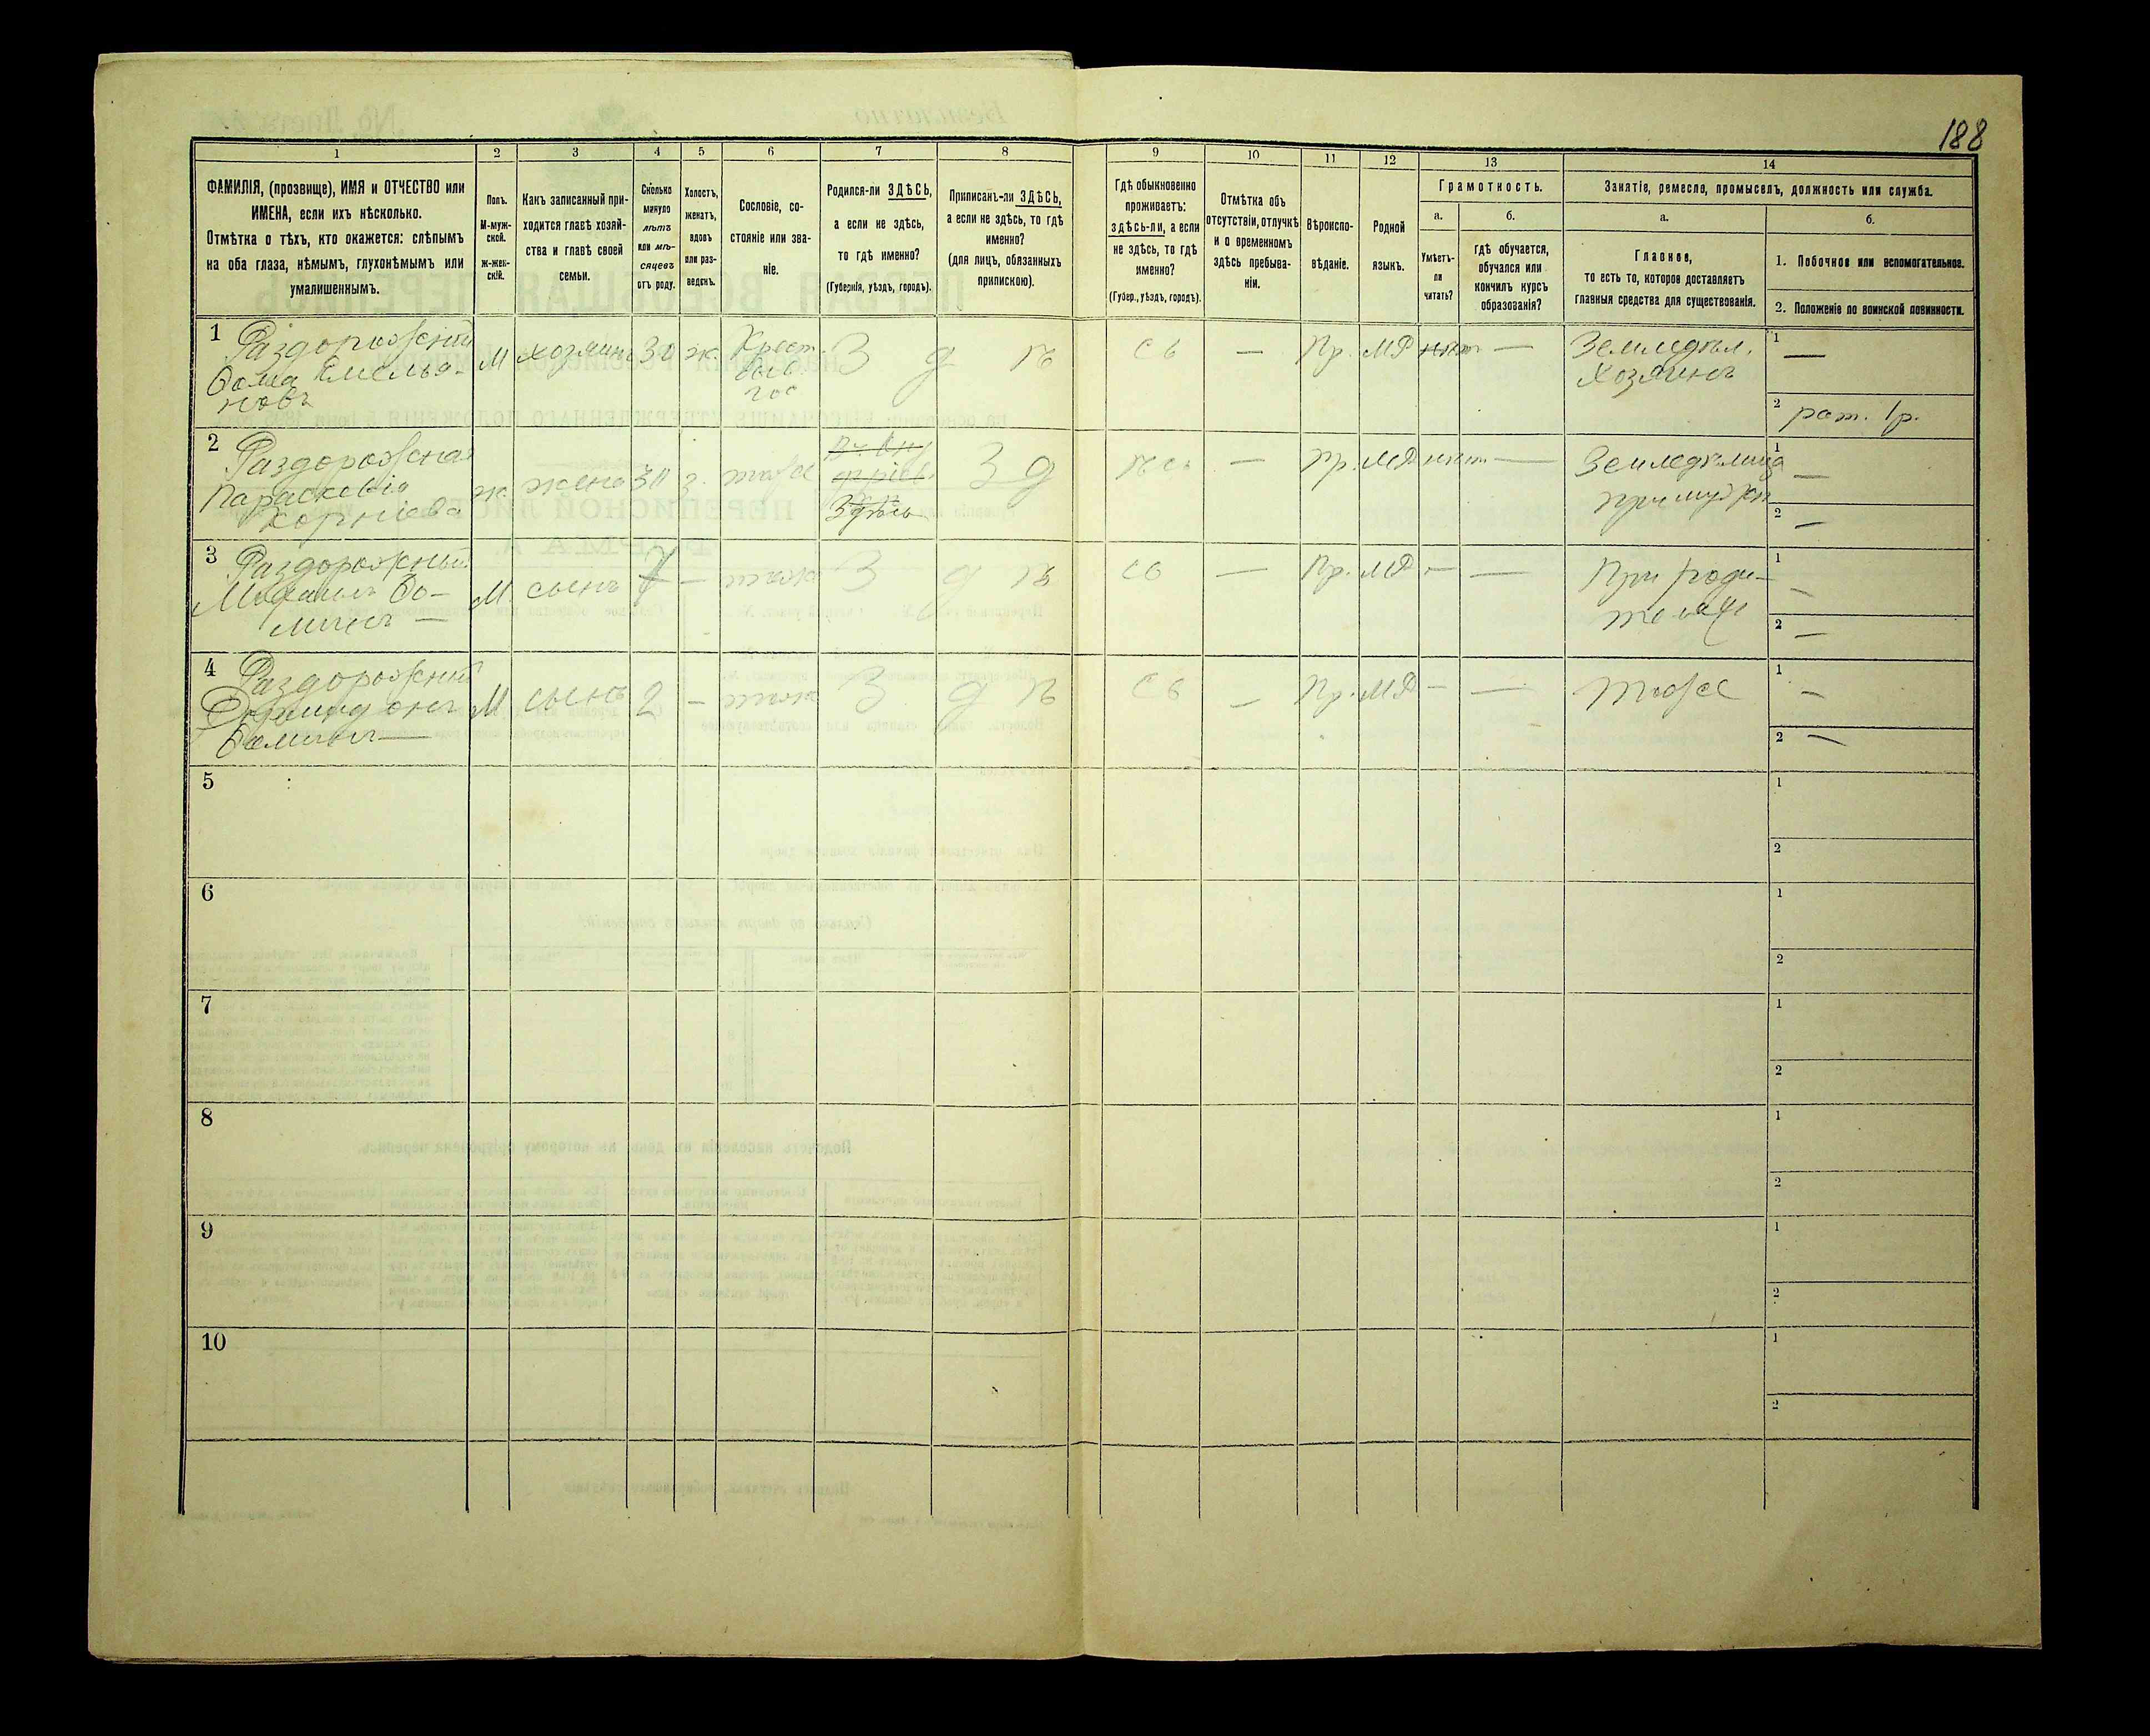 188
1
2
3
4
5
6
7
8
9
10
11
12
13
14
ФАМИЛІЯ, (прозвище), ИМЯ и ОТЧЕСТВО или
ИМЕНА, если ихъ нѣсколько.
Отмѣтка о тѣхъ, кто окажется: слѣпымъ
на оба глаза, нѣмымъ, глухонѣмымъ или
умалишеннымъ.
Полъ.
М-муж-
ской.
ж-жен-
скій.
Какъ записанный при-
ходится главѣ хозяй-
ства и главѣ своей
семьи.
Сколько
минуло
лѣтъ
или мѣ-
сяцевъ
отъ роду.
Холостъ,
женатъ,
вдовъ
или раз-
веденъ.
Сословіе, со-
стояніе или зва-
ніе.
Родился-ли ЗДѢСЬ,
а если не здѣсь,
то гдѣ именно?
(Губернія, уѣздъ, городъ).
Приписанъ-ли ЗДѢСЬ,
а если не здѣсь, то гдѣ
именно?
(для лицъ, обязанныхъ
припискою).
Гдѣ обыкновенно
проживаетъ:
здѣсь-ли, а если
не здѣсь, то гдѣ
именно?
(Губер., уѣздъ, городъ).
Отмѣтка объ
отсутствіи, отлучкѣ
и о временномъ
здѣсь пребыва-
ніи.
Вѣроиспо-
вѣданіе.
Родной
языкъ.
Грамотность.
а.
б.
Умѣетъ-
ли
читать?
гдѣ обучается,
обучался или
кончилъ курсъ
образованія?
Занятіе, ремесло, промыселъ, должность или служба.
а.
б.
Главное,
то есть то, которое доставляетъ
главныя средства для существованія.
1. Побочное или вспомогательное.
2. Положеніе по воинской повинности.
1
Раздорожній
Ѳома Емелья-
новъ
М
хозяинъ
30
ж.
Крест.
гос
З д ѣ
сь
—
Пр.
МР
нѣтъ
—
Земледѣл.
Хозяинъ
1 —
2 рат. 1р.
2
Раздорожная
Параскевія
Корніева
ж.
жена
30
з.
тоже
Здѣсь
З д
ѣсь
—
Пр.
МР
нѣтъ
—
Земледѣлица
при мужѣ
1 —
2 —
3
Раздорожный
Михаилъ Ѳо-
минъ —
М.
сынъ
7
—
тоже
З д ѣ
сь
—
Пр.
МР
—
—
При роди-
теляхъ
1 —
2 —
4
Раздорожній
Ѳоминъ —
М
сынъ
2
—
тоже
З д ѣ
сь
—
Пр.
МР
—
—
Тоже
1 —
2 —
5
1
2
6
1
2
7
1
2
8
1
2
9
1
2
10
1
2